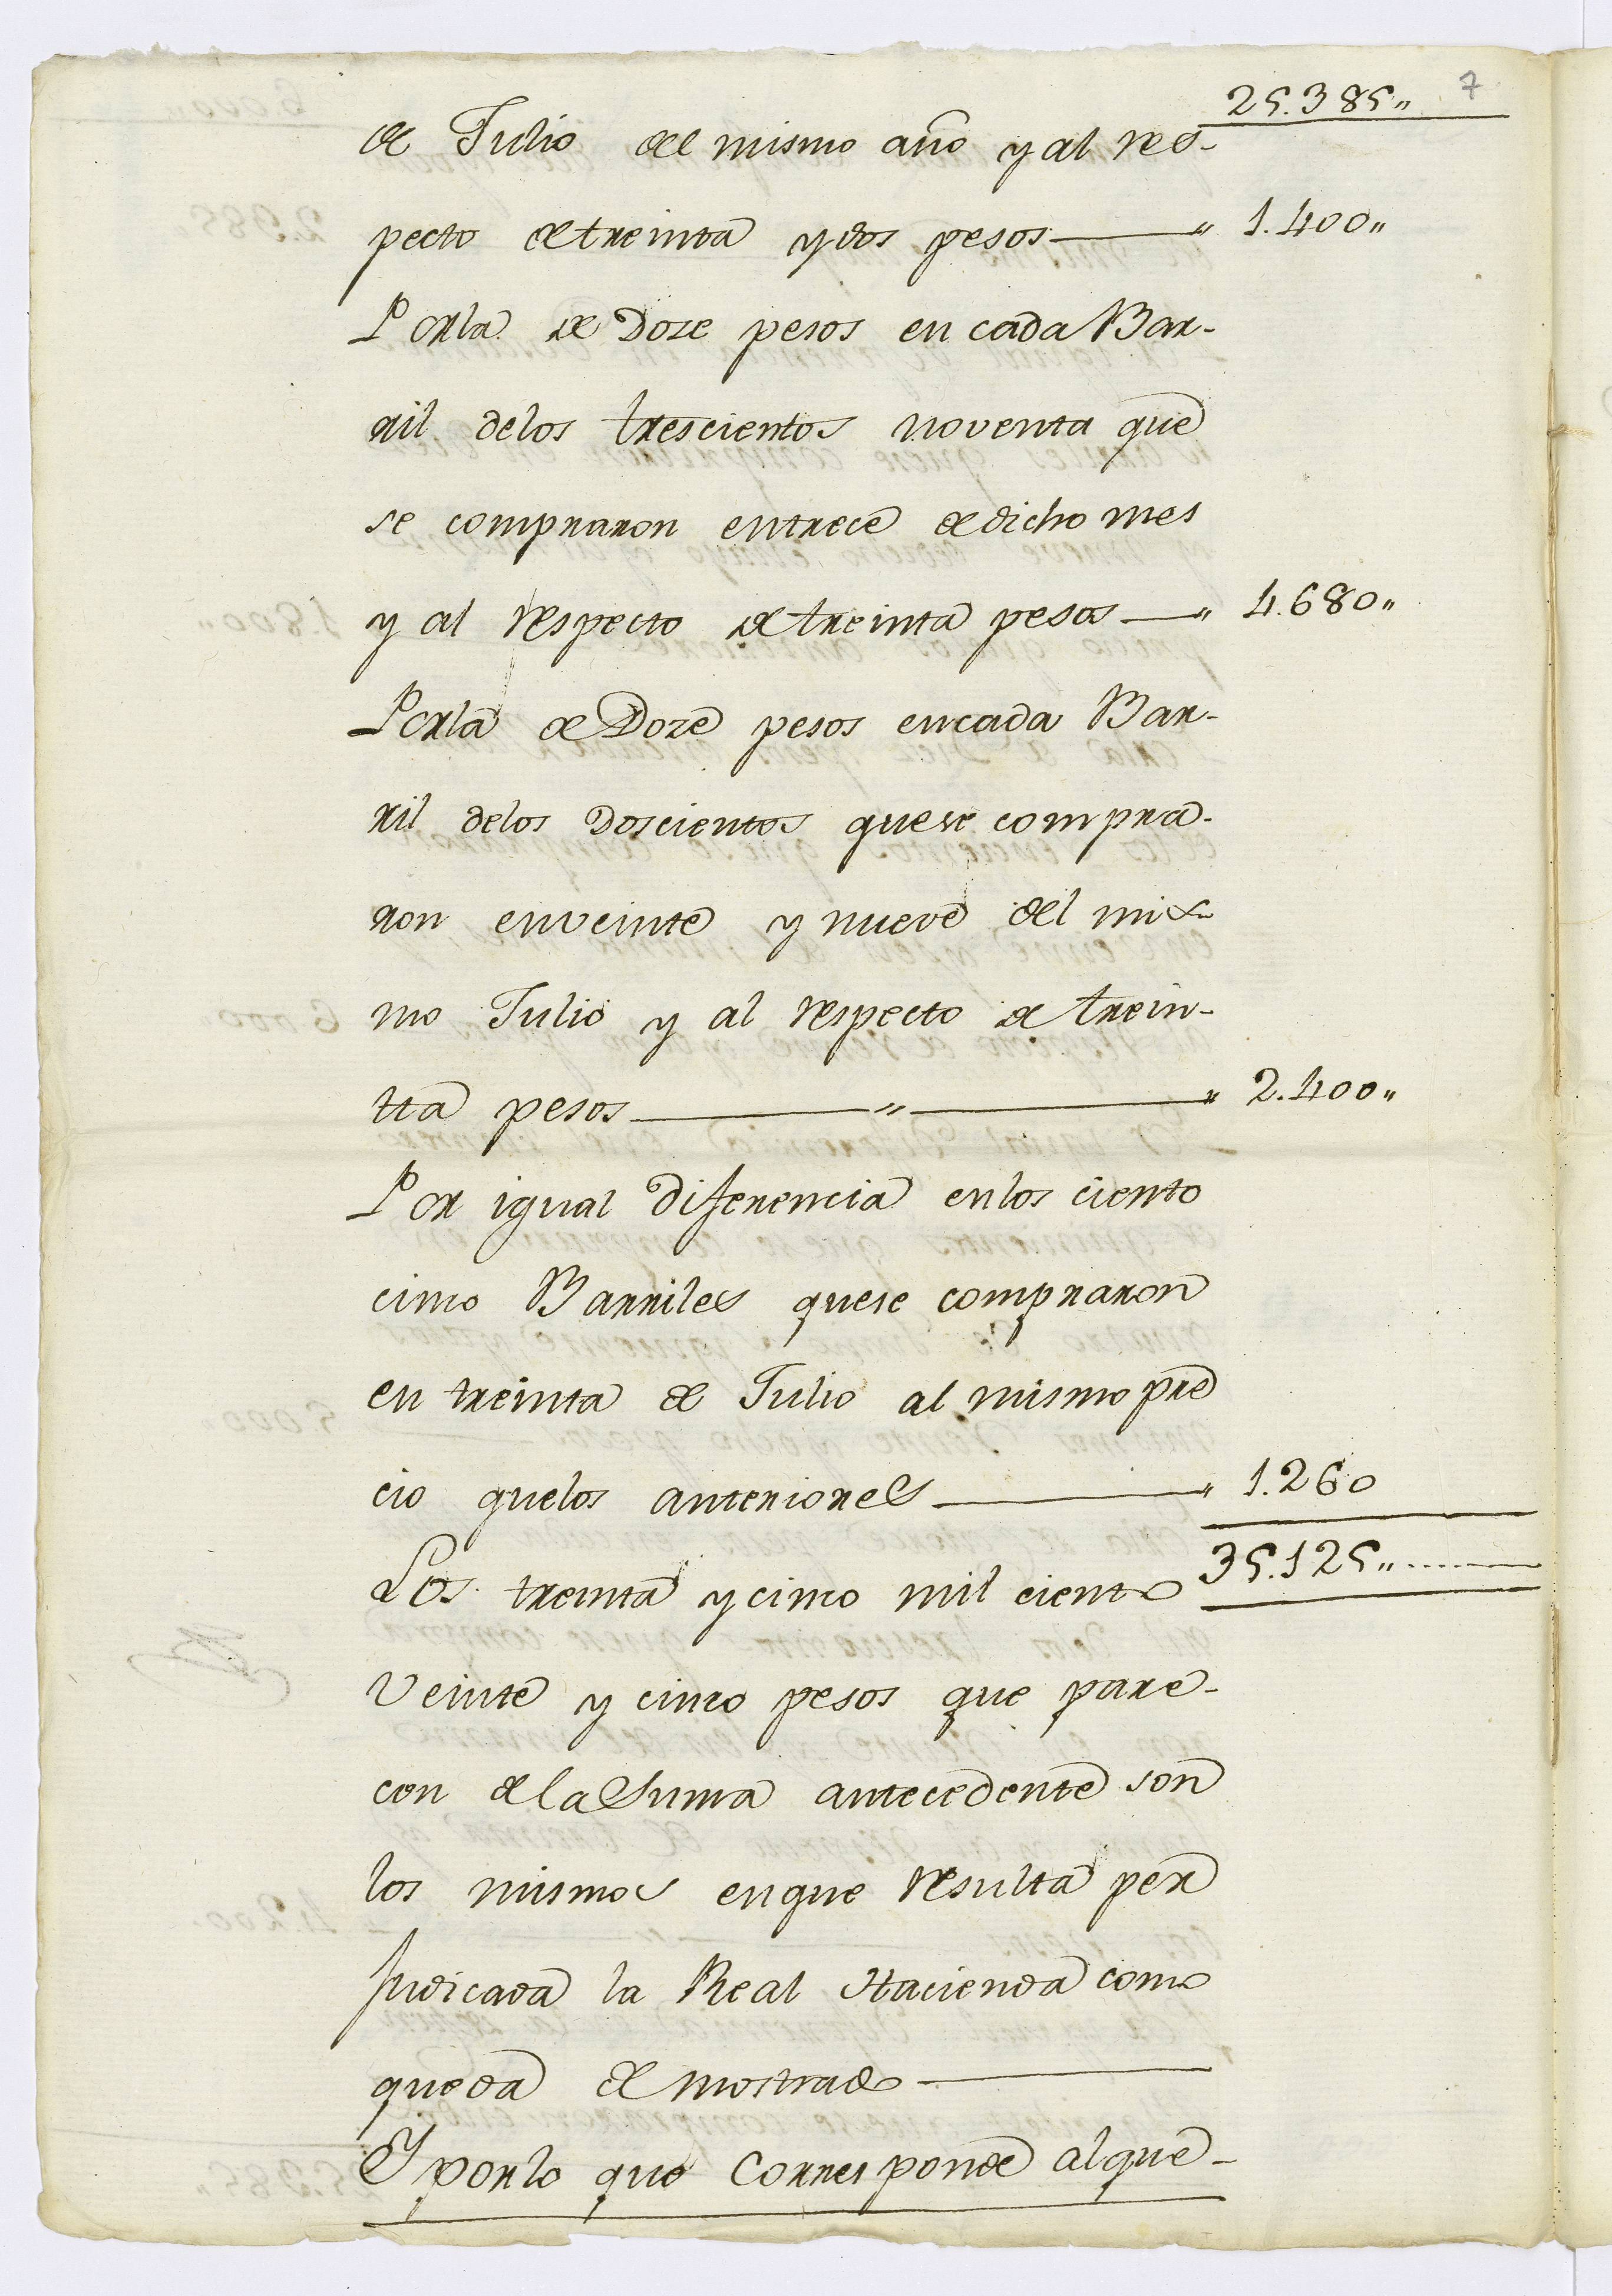 25.385„ 7
de Julio del mismo año y al res-
pecto de treinta y dos pesos —— „ 1.400„
Por la de Doze pesos en cada Bar-
ril de los trescientos noventa que
se compraron en trece de dicho mes
y al respecto de treinta pesos — „ 4.680„
Por la de Doze pesos en cada Bar-
ril de los Doscientos que se compra-
ron en veinte y nueve del mis-
mo Julio y al respecto de trein-
tta pesos —— „ —— „ 2.400„
Por igual diferencia en los ciento
cinco Barriles que se compraron
en treinta de Julio al mismo pre
cio que los anteriores —— „ 1.260
35.125„
Los treinta y cinco mil ciento
Veinte y cinco pesos que pare-
cen de la Suma antecedente son
los mismos en que resulta per
Judicada la Real Hacienda como
queda demostrado ——
Y por lo que corresponde al que-